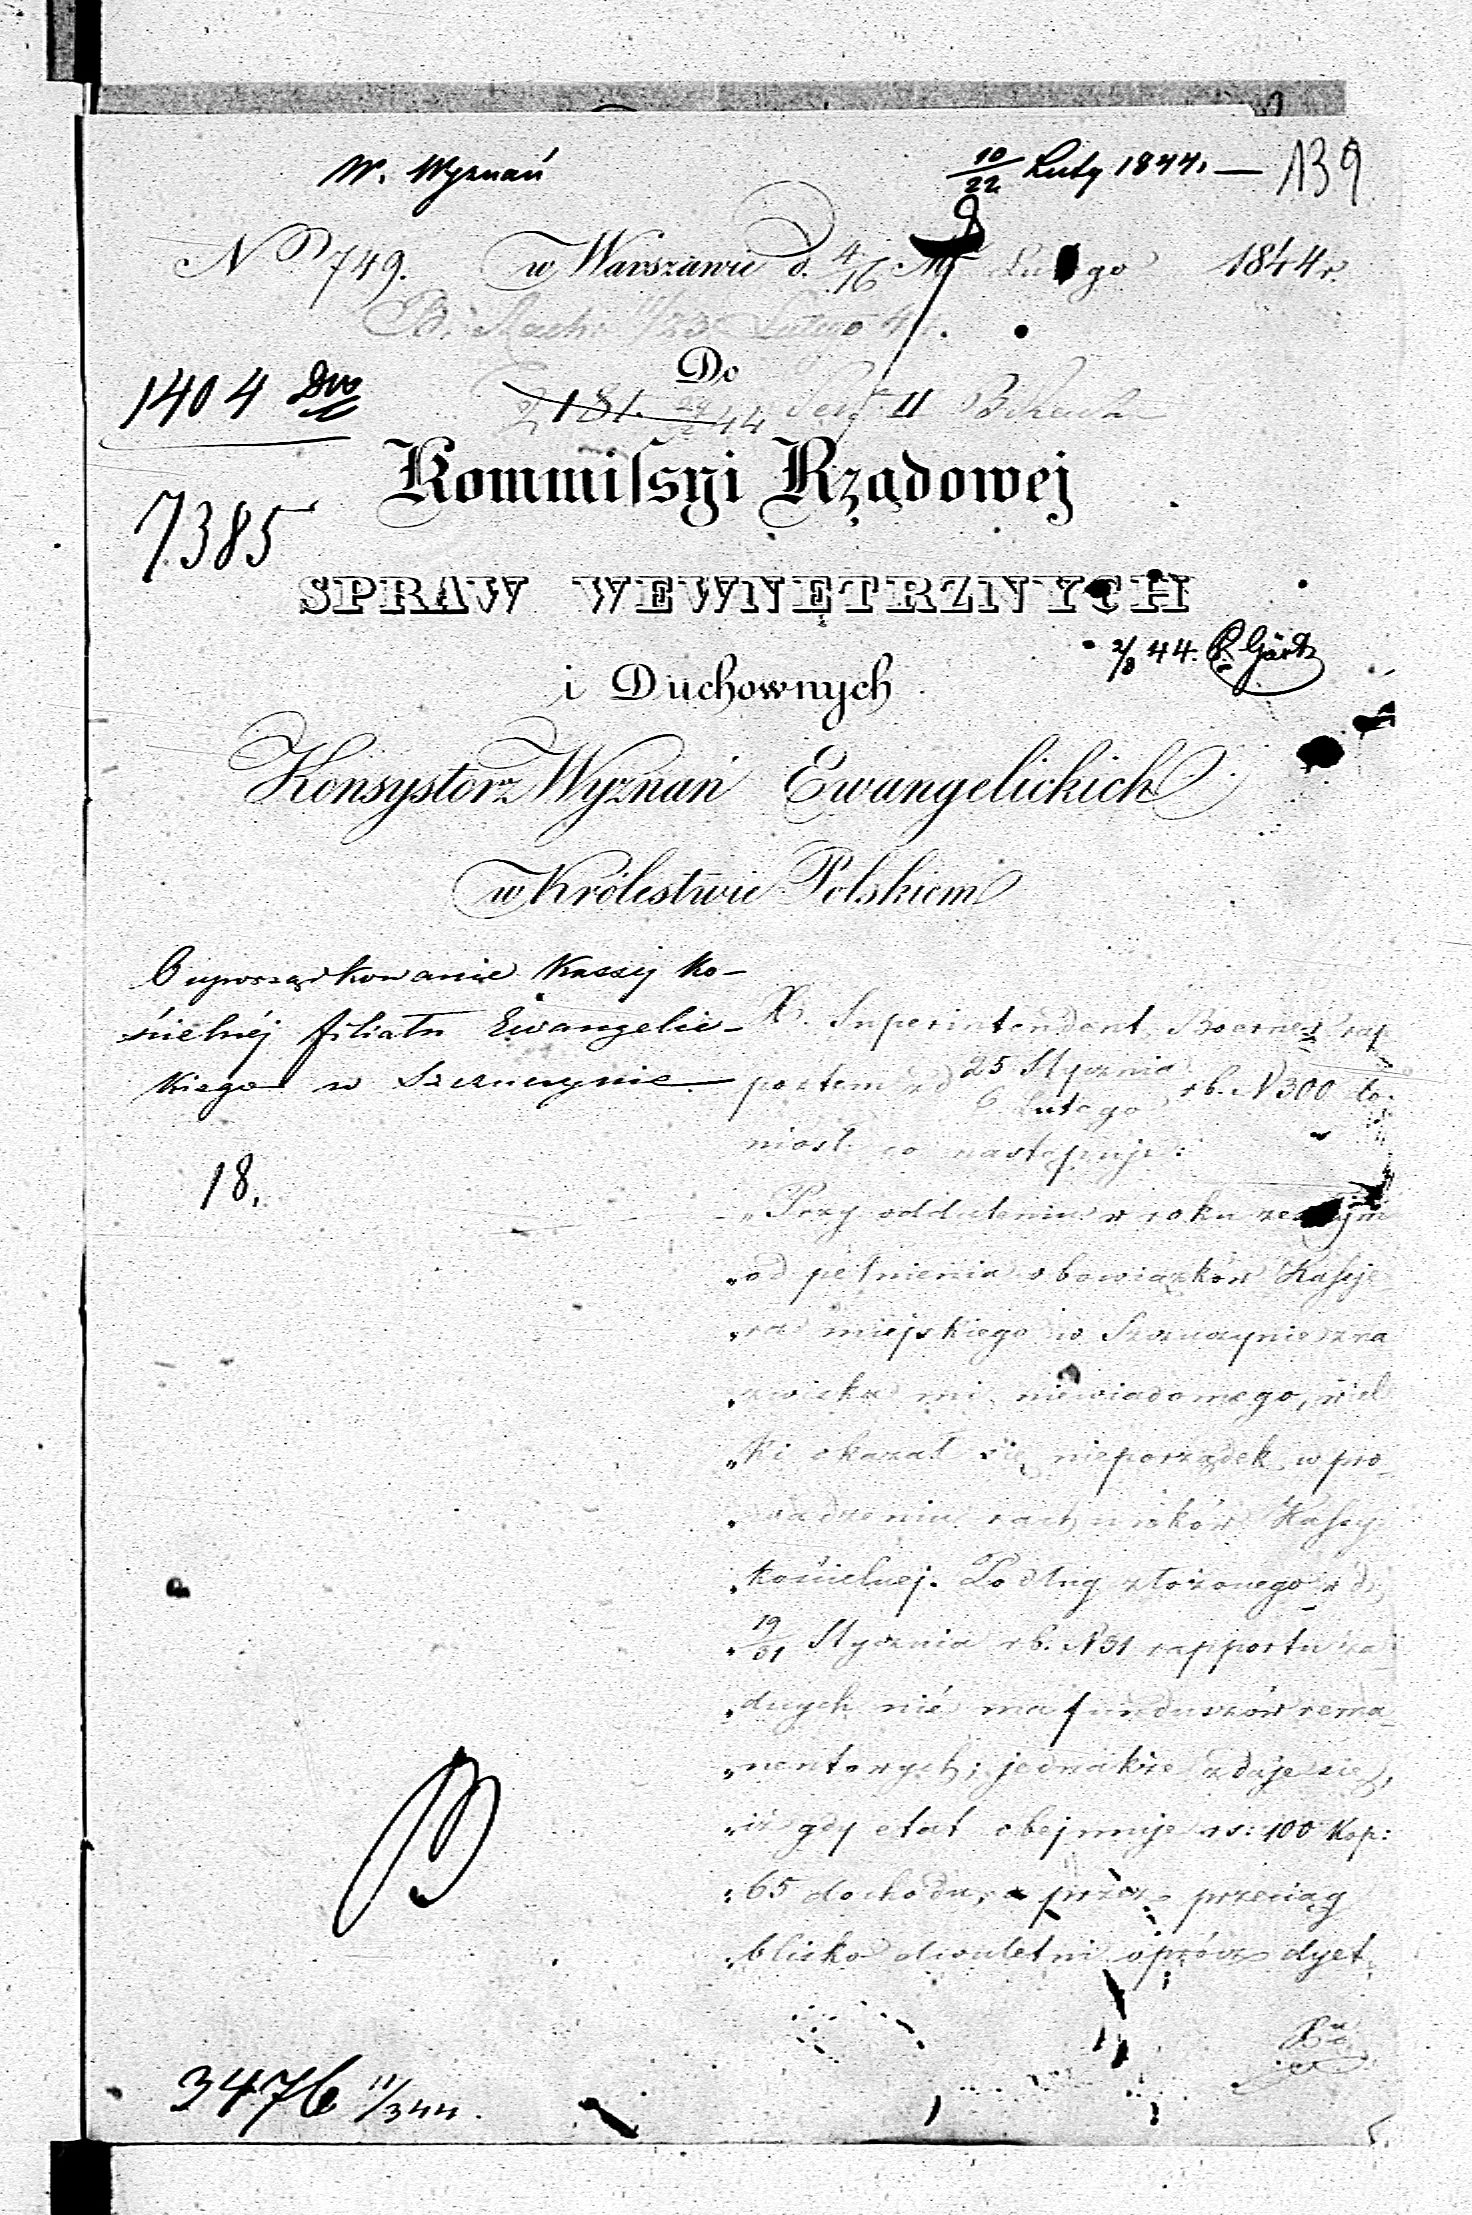 W. Wyznań
10/22 Luty 1844. — 139
No 749. w Warszawie d. 4/16 M. Lutego 1844 r.
B. 11/23 Lutego 44.
Do
1404 Dwo
2181. 44 II
Kommissyi Rządowej
7385
SPRAW WEWNĘTRZNYCH
2/3 44.
i Duchownych
Konsystorz Wyznań Ewangelickich
w Królestwie Polskiem
O uporządkowanie Kassy Ko-
ścielnéj filiału Ewangelic-
kiego w Szczuczynie
18.
X. Superintendent Boerner rap
portem od 25 Stycznia / 6 Lutego rb. N 300 do-
niosł co następuje:
„Przy oddaleniu w roku zeszłym
„od pełnienia obowiązków Kassje
„ra miejskiego w Szczuczynie z na
„zwiska mi niewiadomego, wiel
„ki okazał się nieporządek w pro-
„wadzeniu rachunków Kassy
„kościelnej. Podług złożonego w d.
„19/31 Stycznia rb. N 31 rapportu ża
„dnych nié ma funduszów rema-
„nentowych; jednakże zdaje się,
„iż gdy etat obejmuje rs: 100 Kop:
„65 dochodu, a przez przeciąg
„blisko dwuletni oprócz dyet
3476 11/3 44.